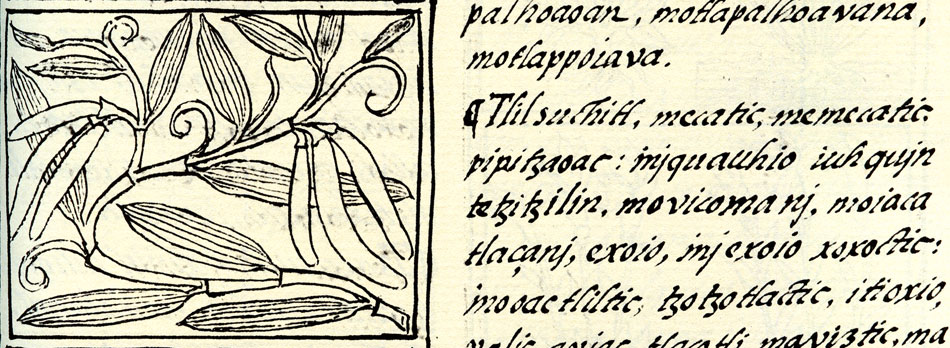 palhoaoan, motlapalhoavana,
motlappoiava.
¶Tlilsuchitl, mecatic, memecatic
pipitzaoac: injquauhio iuhqujn
tetzitzilin, movicomanj, moiaca
tlaçanj, exoio, injexoio xoxoctic:
inooac tliltic, tzotzotlactic, itioxio,
velic, aviac, tlaçotli, maviztic, ma